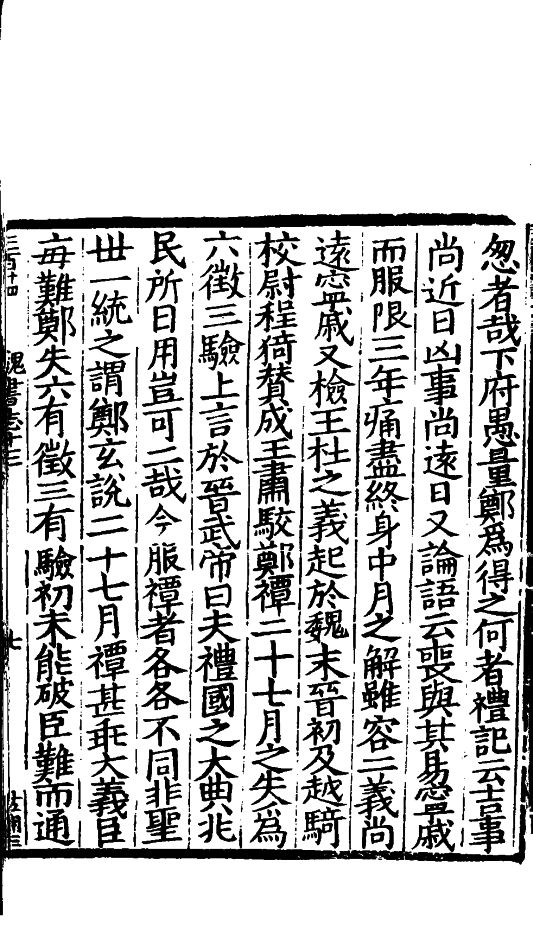 怱者哉下府愚量鄭爲得之何者禮記云吉事
尚近日凶事尚遠日又論語云喪與其易寧戚
而服限三年痛盡終身中月之解雖容二義尚
遠寧戚又檢王杜之義起於魏末晉初及越騎
校尉程猗賛成王肅駮鄭禫二十七月之失爲
六徵三驗上言於晉武帝曰夫禮國之大典兆
民所日用豈可二哉今服禫者各各不同非聖
丗一統之謂鄭玄說二十七月禫甚乖大義臣
每難鄭失六有徵三有驗初未能破臣難而通
三百十四 魏書志十三 七